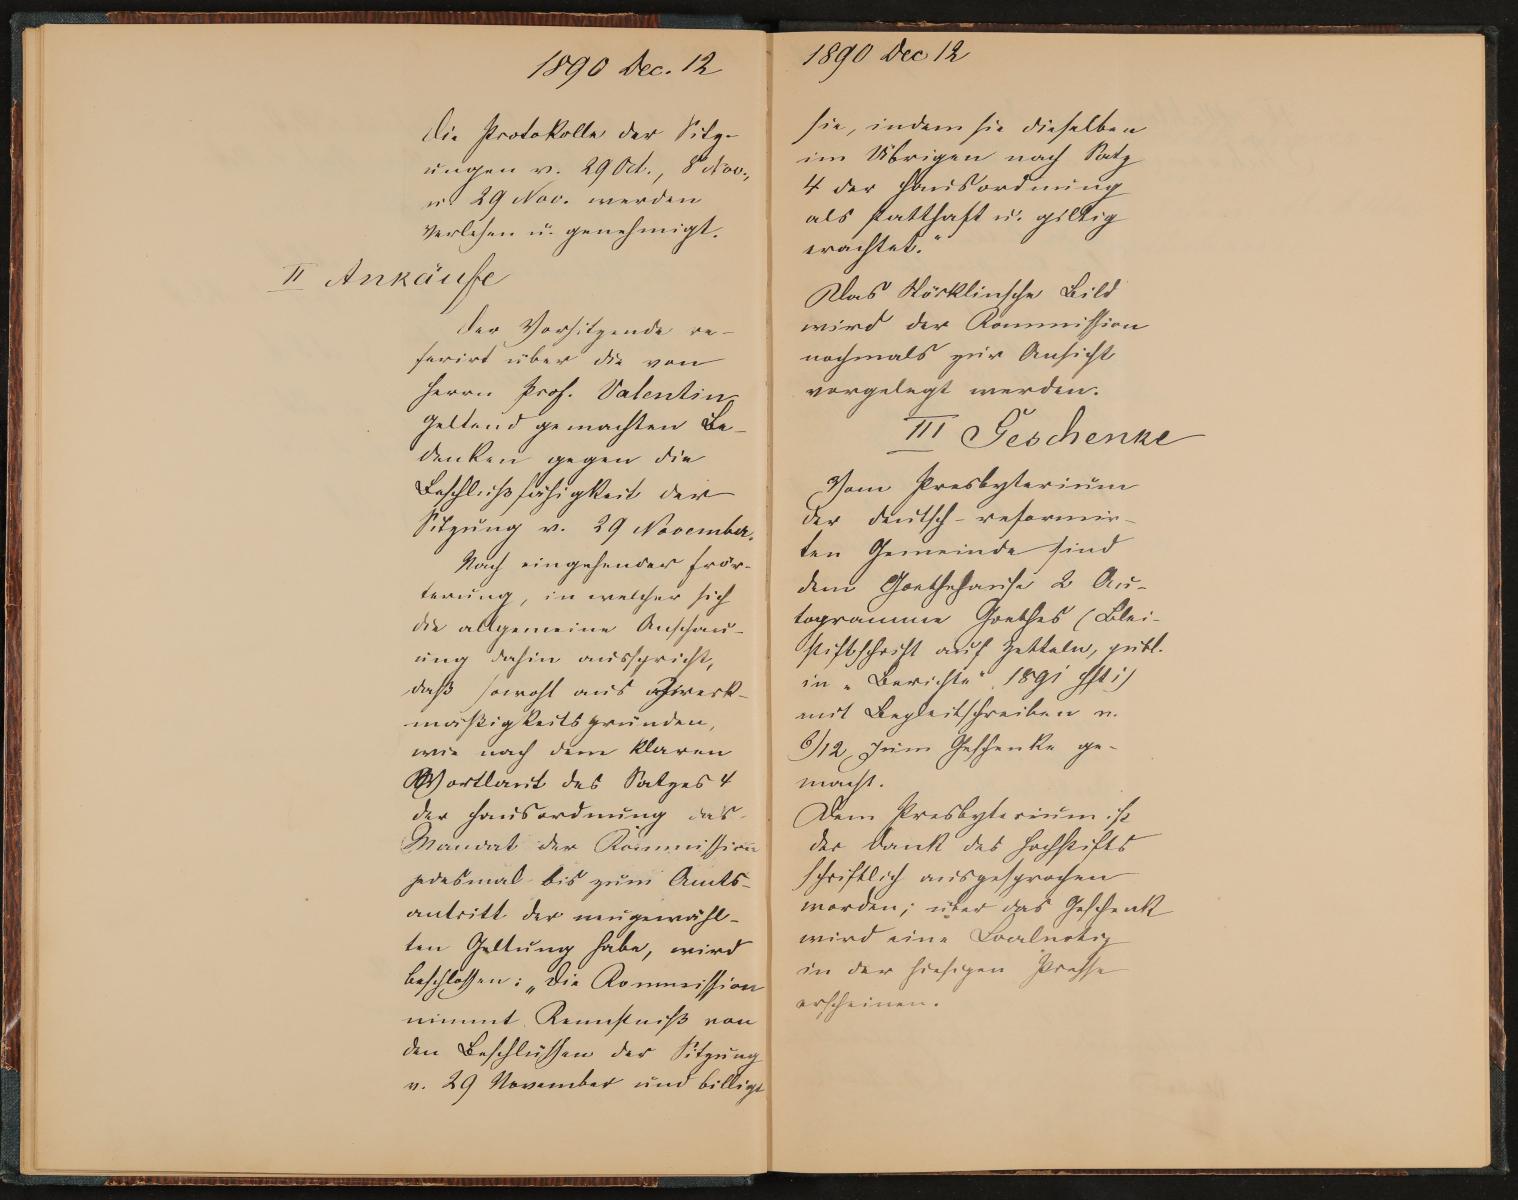 1890 Dec. 12
Die Protokolle der Sitz-
ungen v. 29 Oct., 8 Nov.,
u. 29 Nov. werden
verlesen u. genehmigt.
II Ankäufe
Der Vorsitzende re-
ferirt über die von
Herrn Prof. Valentin
geltend gemachten Be-
denken gegen die
Beschlußfähigkeit der
Sitzung v. 29 November.
Nach eingehender Erör-
terung, in welcher sich
die allgemeine Anschau-
ung dahin ausspricht,
daß sowohl aus Zweck-
mäßigkeitsgründen,
wie nach dem klaren
Wortlaut des Satzes 4
der Hausordnung das
Mandat der Kommission
jedesmal bis zum Amts-
antritt der neugewähl-
ten Geltung habe, wird
beschlossen: „Die Kommission
nimmt Kenntniß von
den Beschlüssen der Sitzung
v. 29 November und billigt
1890 Dec 12
sie, indem sie dieselben
im Übrigen nach Satz
4 der Hausordnung
als statthaft u. giltig
erachtet."
Das Stöcklinsche Bild
wird der Kommission
nochmals zur Ansicht
vorgelegt werden.
III Geschenke
Vom Presbyterium
der deutsch-reformir-
ten Gemeinde sind
dem Goethehause 2 Au-
togramme Goethes (Blei-
stiftschrift auf Zetteln, publ.
in „Berichte" 1891 Hft 1)
mit Begleitschreiben v.
6/12 zum Geschenke ge-
macht.
Dem Presbyterium ist
der Dank des Hochstifts
schriftlich ausgesprochen
worden; über das Geschenk
wird eine Localnotiz
in der hiesigen Presse
erscheinen.